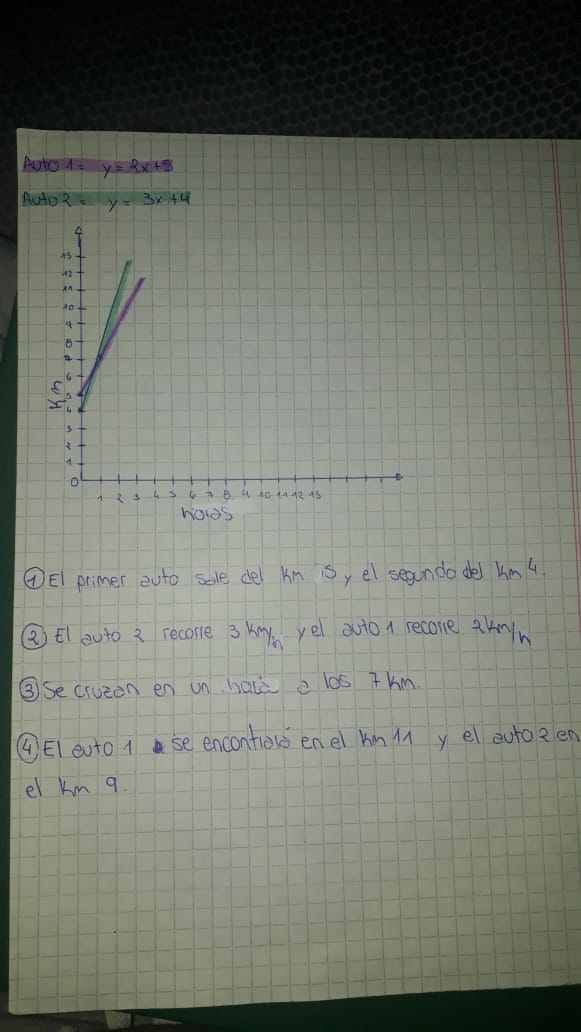 Auto 1= y= 2x+5
Auto 2= y= 3x+4
13
12
11
10
9
8
7
6
5
4
3
2
1
0
Km
1 2 3 4 5 6 7 8 9 10 11 12 13
horas
① El primer auto sale del km 5 y el segundo del km 4.
② El auto 2 recorre 3 km/h y el auto 1 recorre 2 km/h
③ Se cruzan en un hora a los 7 km.
④ El auto 1 se encontrará en el km 11 y el auto 2 en
el km 9.